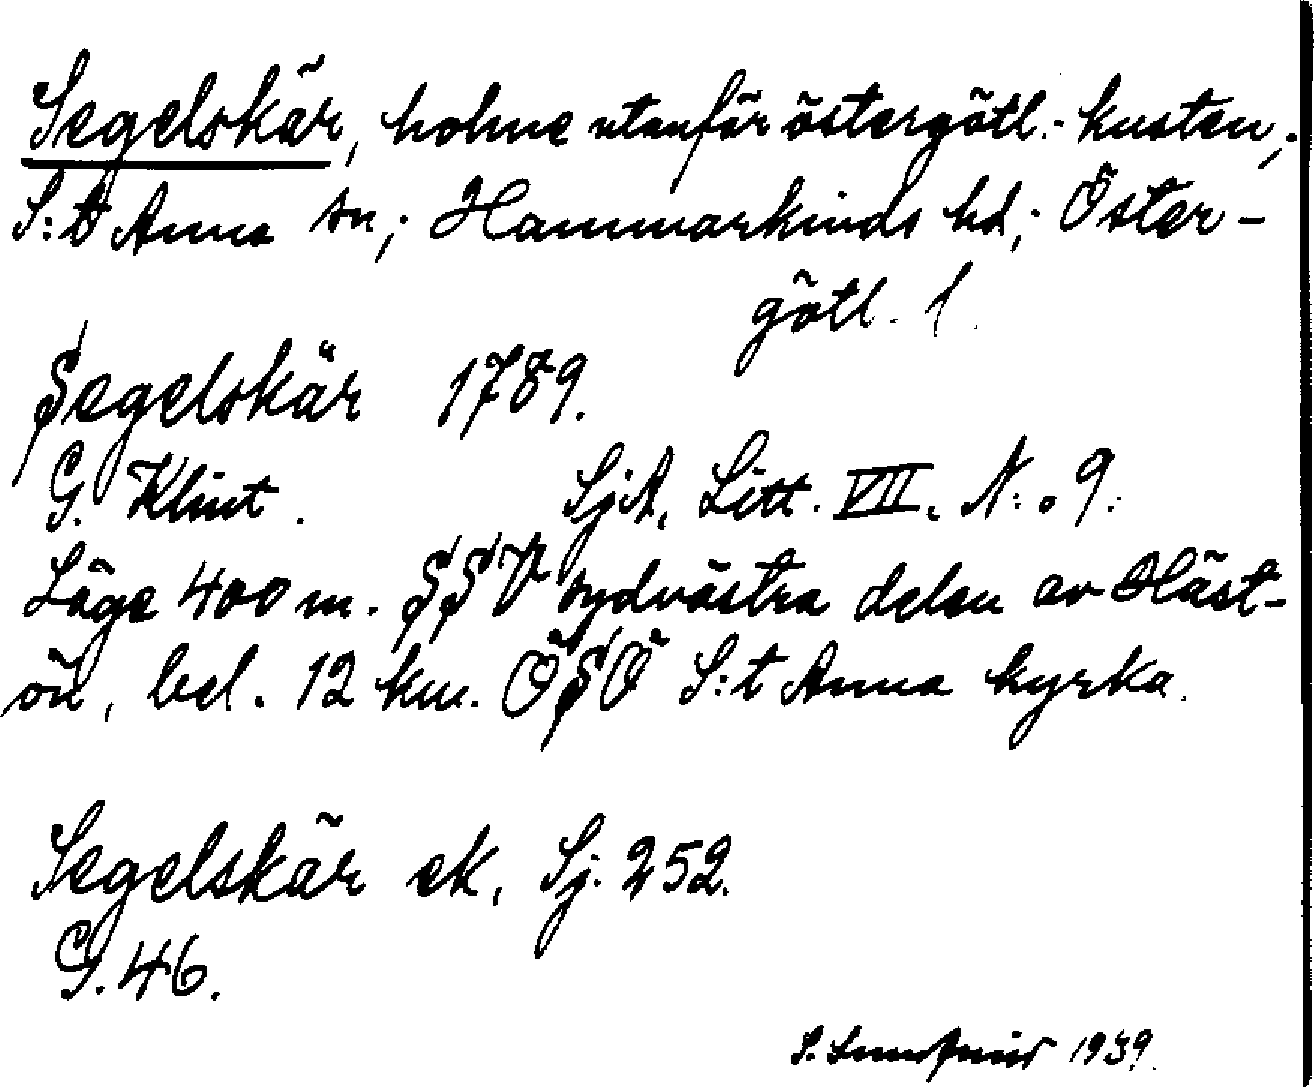 Segelskär, holme utanför östergötl.-kusten,;
S:t Anna sn,; Hammarkinds hd,; Öster-
götl. l.
Segelskär 1789.
G. Klint. SjA, Litt. VII, N:o 9.
Läge 400 m. SSV sydvästra delen av Häst-
ön, bel. 12 km. ÖSÖ S:t Anna kyrka.
Segelskär ek, Sj. 252.
G. 46.
S. 1939.